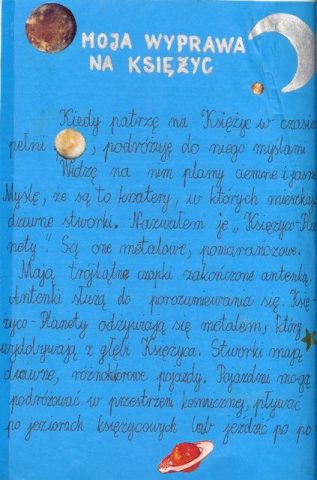 MOJA WYPRAWA
NA KSIĘŻYC
Kiedy patrzę na Księżyc w czasie
pełni, podróżuję do niego myślami
Widzę na nim plamy ciemne i jasne
Myślę, że są to kratery, w których mieszkają
dziwne stworki. Nazwałem je "Księżyco-Pla
nety". Są one metalowe, pomarańczowe.
Mają trójkątne czapki zakończone antenką.
Antenki służą do porozumiewania się. Księ-
życo-Planety odżywiają się metalem, który
wydobywają z głębi Księżyca. Stworki mają
dziwne, różnokolorowe pojazdy. Pojazdni mogą
podróżować w przestrzeni kosmicznej, pływać
po jeziorach księżycowych lub jeździć po po